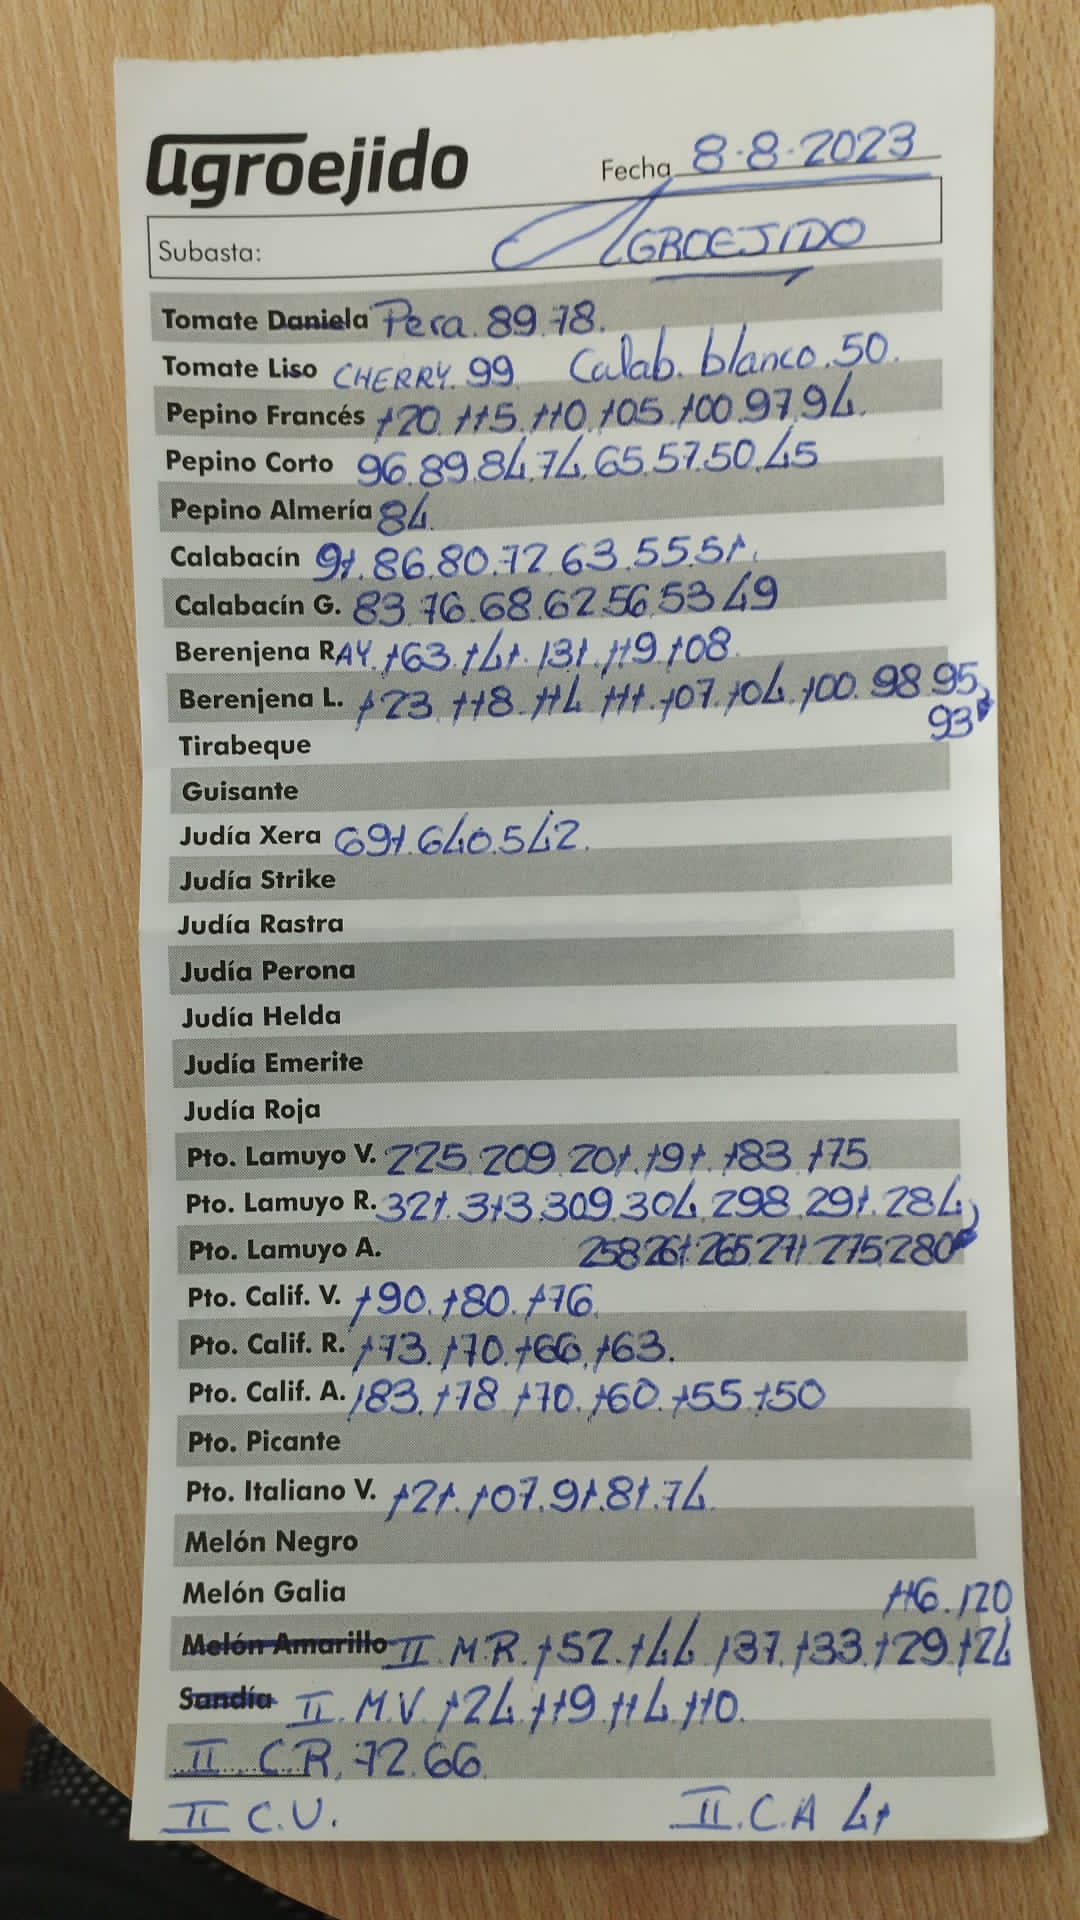 agroejido
Fecha 8-8-2023
Subasta: AGROEJIDO
Tomate Daniela Pera. 89.78.
Tomate Liso CHERRY. 99 Calab. blanco. 50.
Pepino Francés 120. 115. 110. 105. 100. 97. 94.
Pepino Corto 96. 89. 84. 74. 65. 57. 50. 45
Pepino Almería 84.
Calabacín 91. 86. 80. 72. 63. 55. 51.
Calabacín G. 83. 76. 68. 62. 56. 53. 49
Berenjena RAY. 163. 141. 131. 119. 108.
Berenjena L. 123. 118. 114. 111. 107. 104. 100. 98. 95,
93
Tirabeque
Guisante
Judía Xera 691. 640. 542.
Judía Strike
Judía Rastra
Judía Perona
Judía Helda
Judía Emerite
Judía Roja
Pto. Lamuyo V. 225. 209. 201. 191. 183. 175
Pto. Lamuyo R. 321. 313. 309. 304. 298. 291. 284,
Pto. Lamuyo A. 258 261 265 271 275 280
Pto. Calif. V. 190. 180. 176
Pto. Calif. R. 173. 170. 166. 163.
Pto. Calif. A. 183. 178 170. 160. 155 150
Pto. Picante
Pto. Italiano V. 121. 107. 91. 81. 74.
Melón Negro
Melón Galia 116. 120
Melón Amarillo II M.R. 152. 144 137. 133. 129. 124
Sandía II. M.V. 124 119. 114. 110.
II C.R. 72. 66
II C.V. II. C.A 41